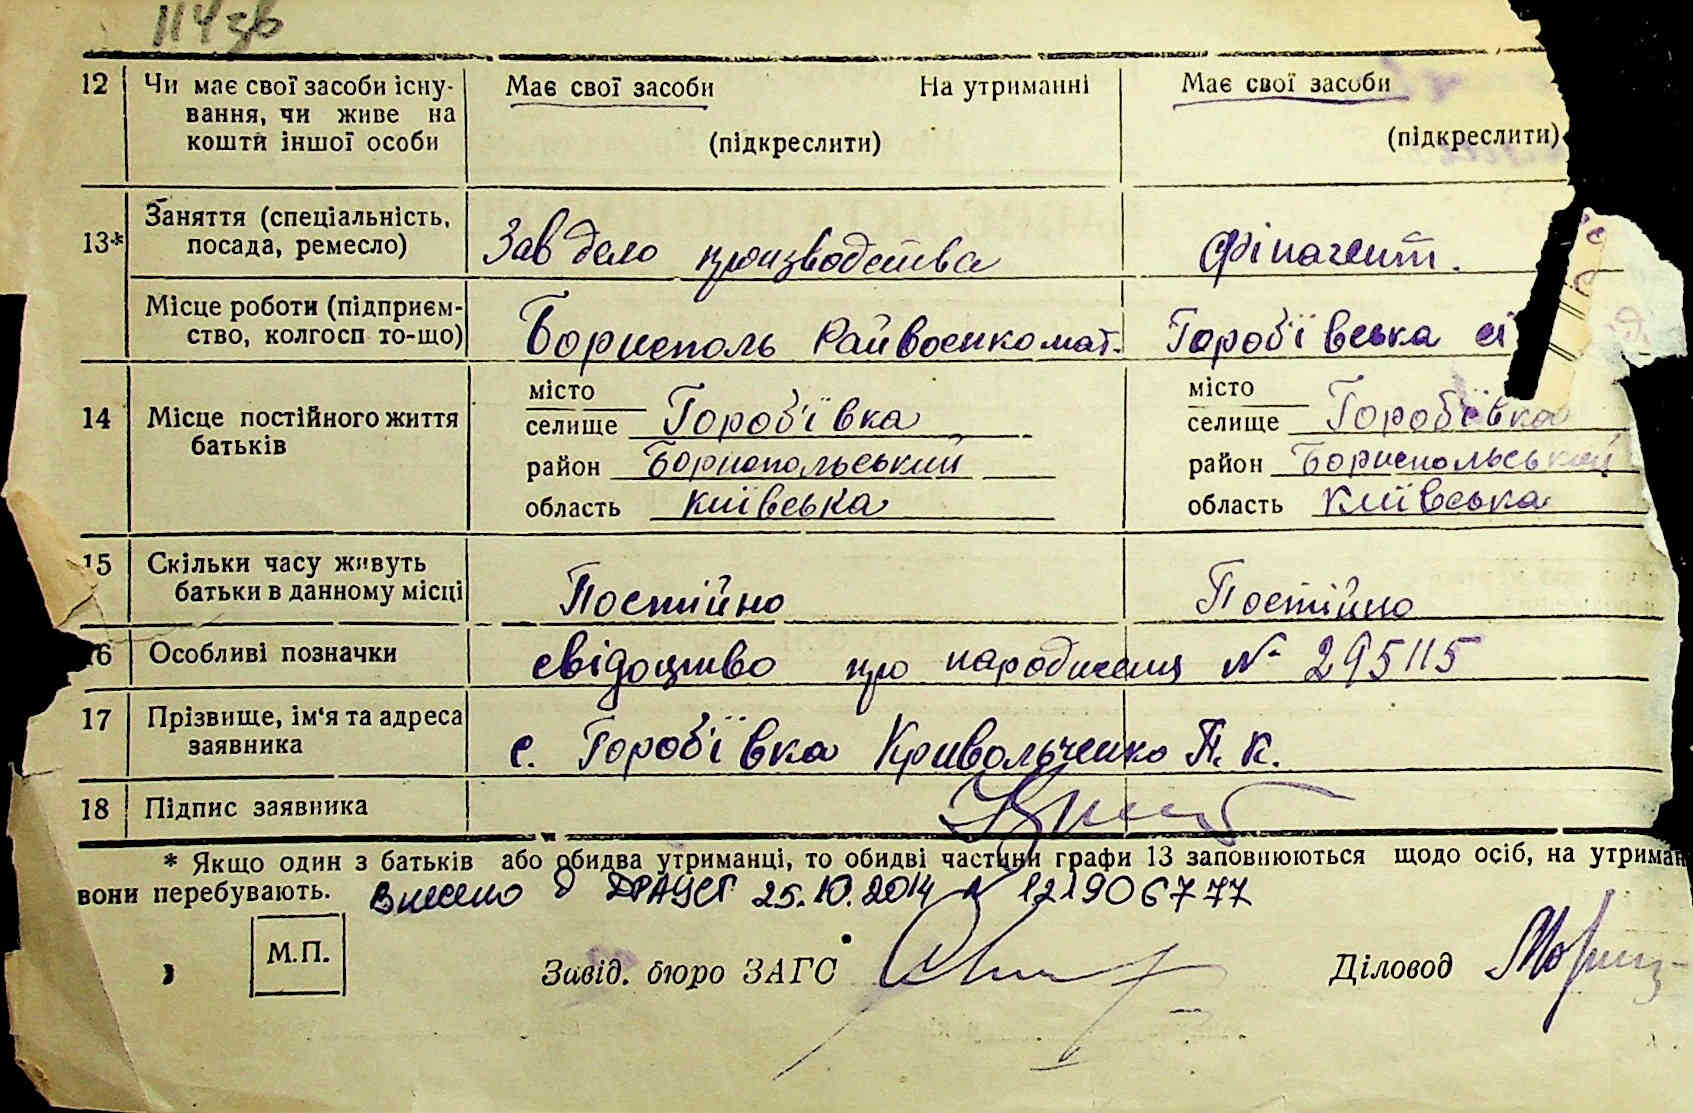 114зв
12 Чи має свої засоби існу- Має свої засоби На утриманні Має свої засоби
вання, чи живе на
кошти іншої особи (підкреслити) (підкреслити)
13* Заняття (спеціальність,
посада, ремесло) Зав дело производства фінагент.
Місце роботи (підприєм-
ство, колгосп то-що) Бориспіль Райвоєнкомат. Гороб'ївська сі
місто місто
14 Місце постійного життя селище Гороб'ївка селище Гороб'ївка
батьків район Бориспольський район Бориспольський
область Київська область Київська
15 Скільки часу живуть
батьки в данному місці Постійно Постійно
16 Особливі позначки свідоцтво про народження № 295115
17 Прізвище, ім'я та адреса
заявника с. Гороб'ївка Кривольченко П. К.
18 Підпис заявника
* Якщо один з батьків або обидва утриманці, то обидві частини графи 13 заповнюються щодо осіб, на утриман
вони перебувають. Внесено в ДРАЦСГ 25.10.2014 № 121906777
М.П. Завід. бюро ЗАГС Діловод